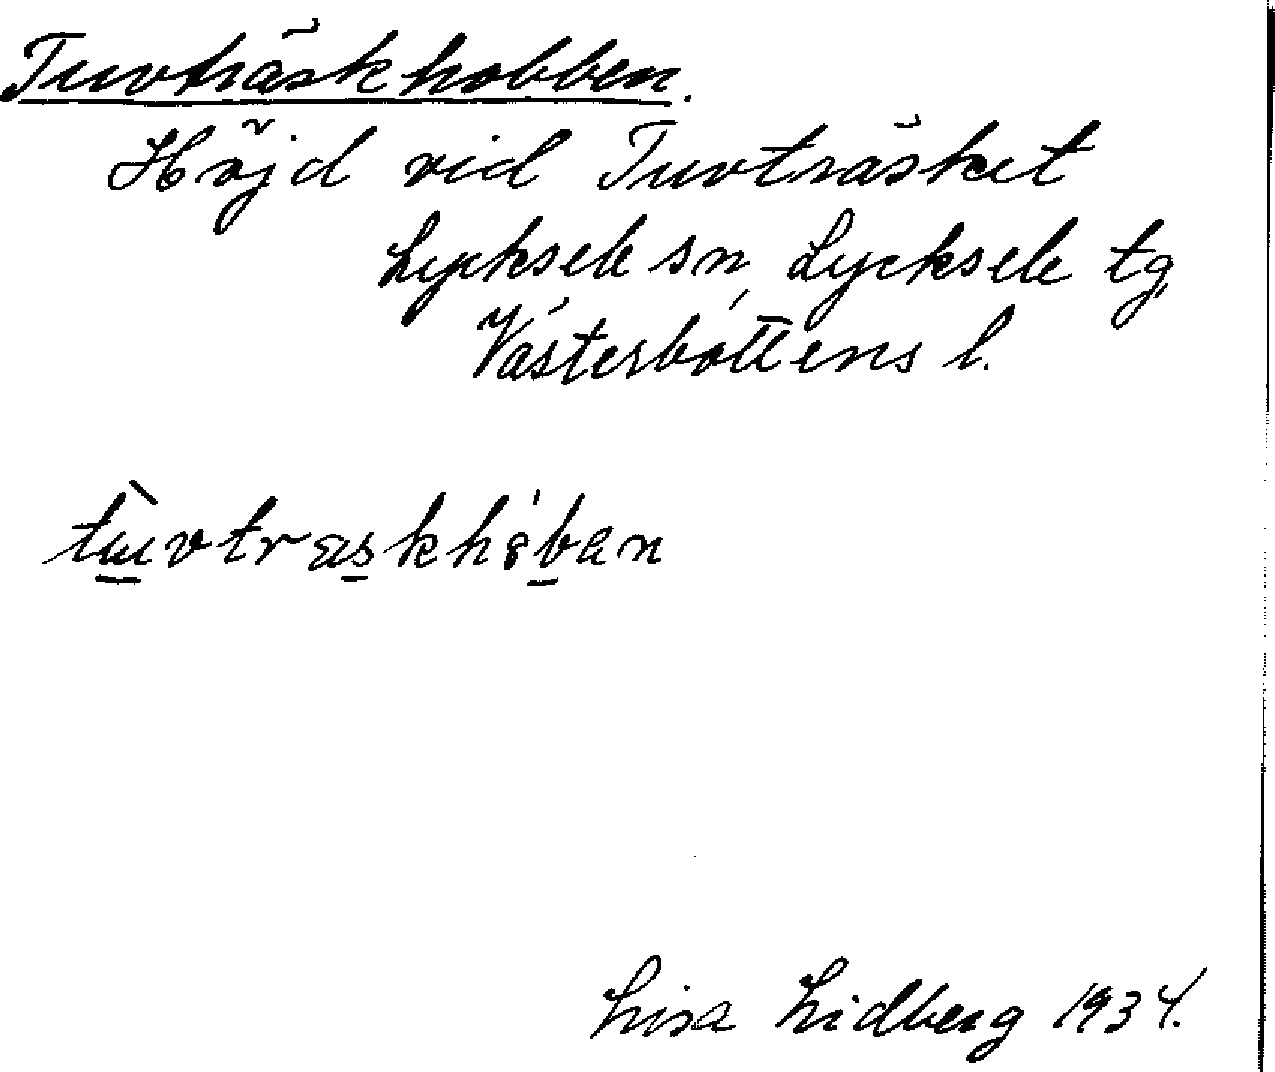 Tuvträskhobben.
Höjd vid Tuvträsket
Lycksele sn, Lycksele tg,
Västerbottens l.
Lisa Lidberg 1934.